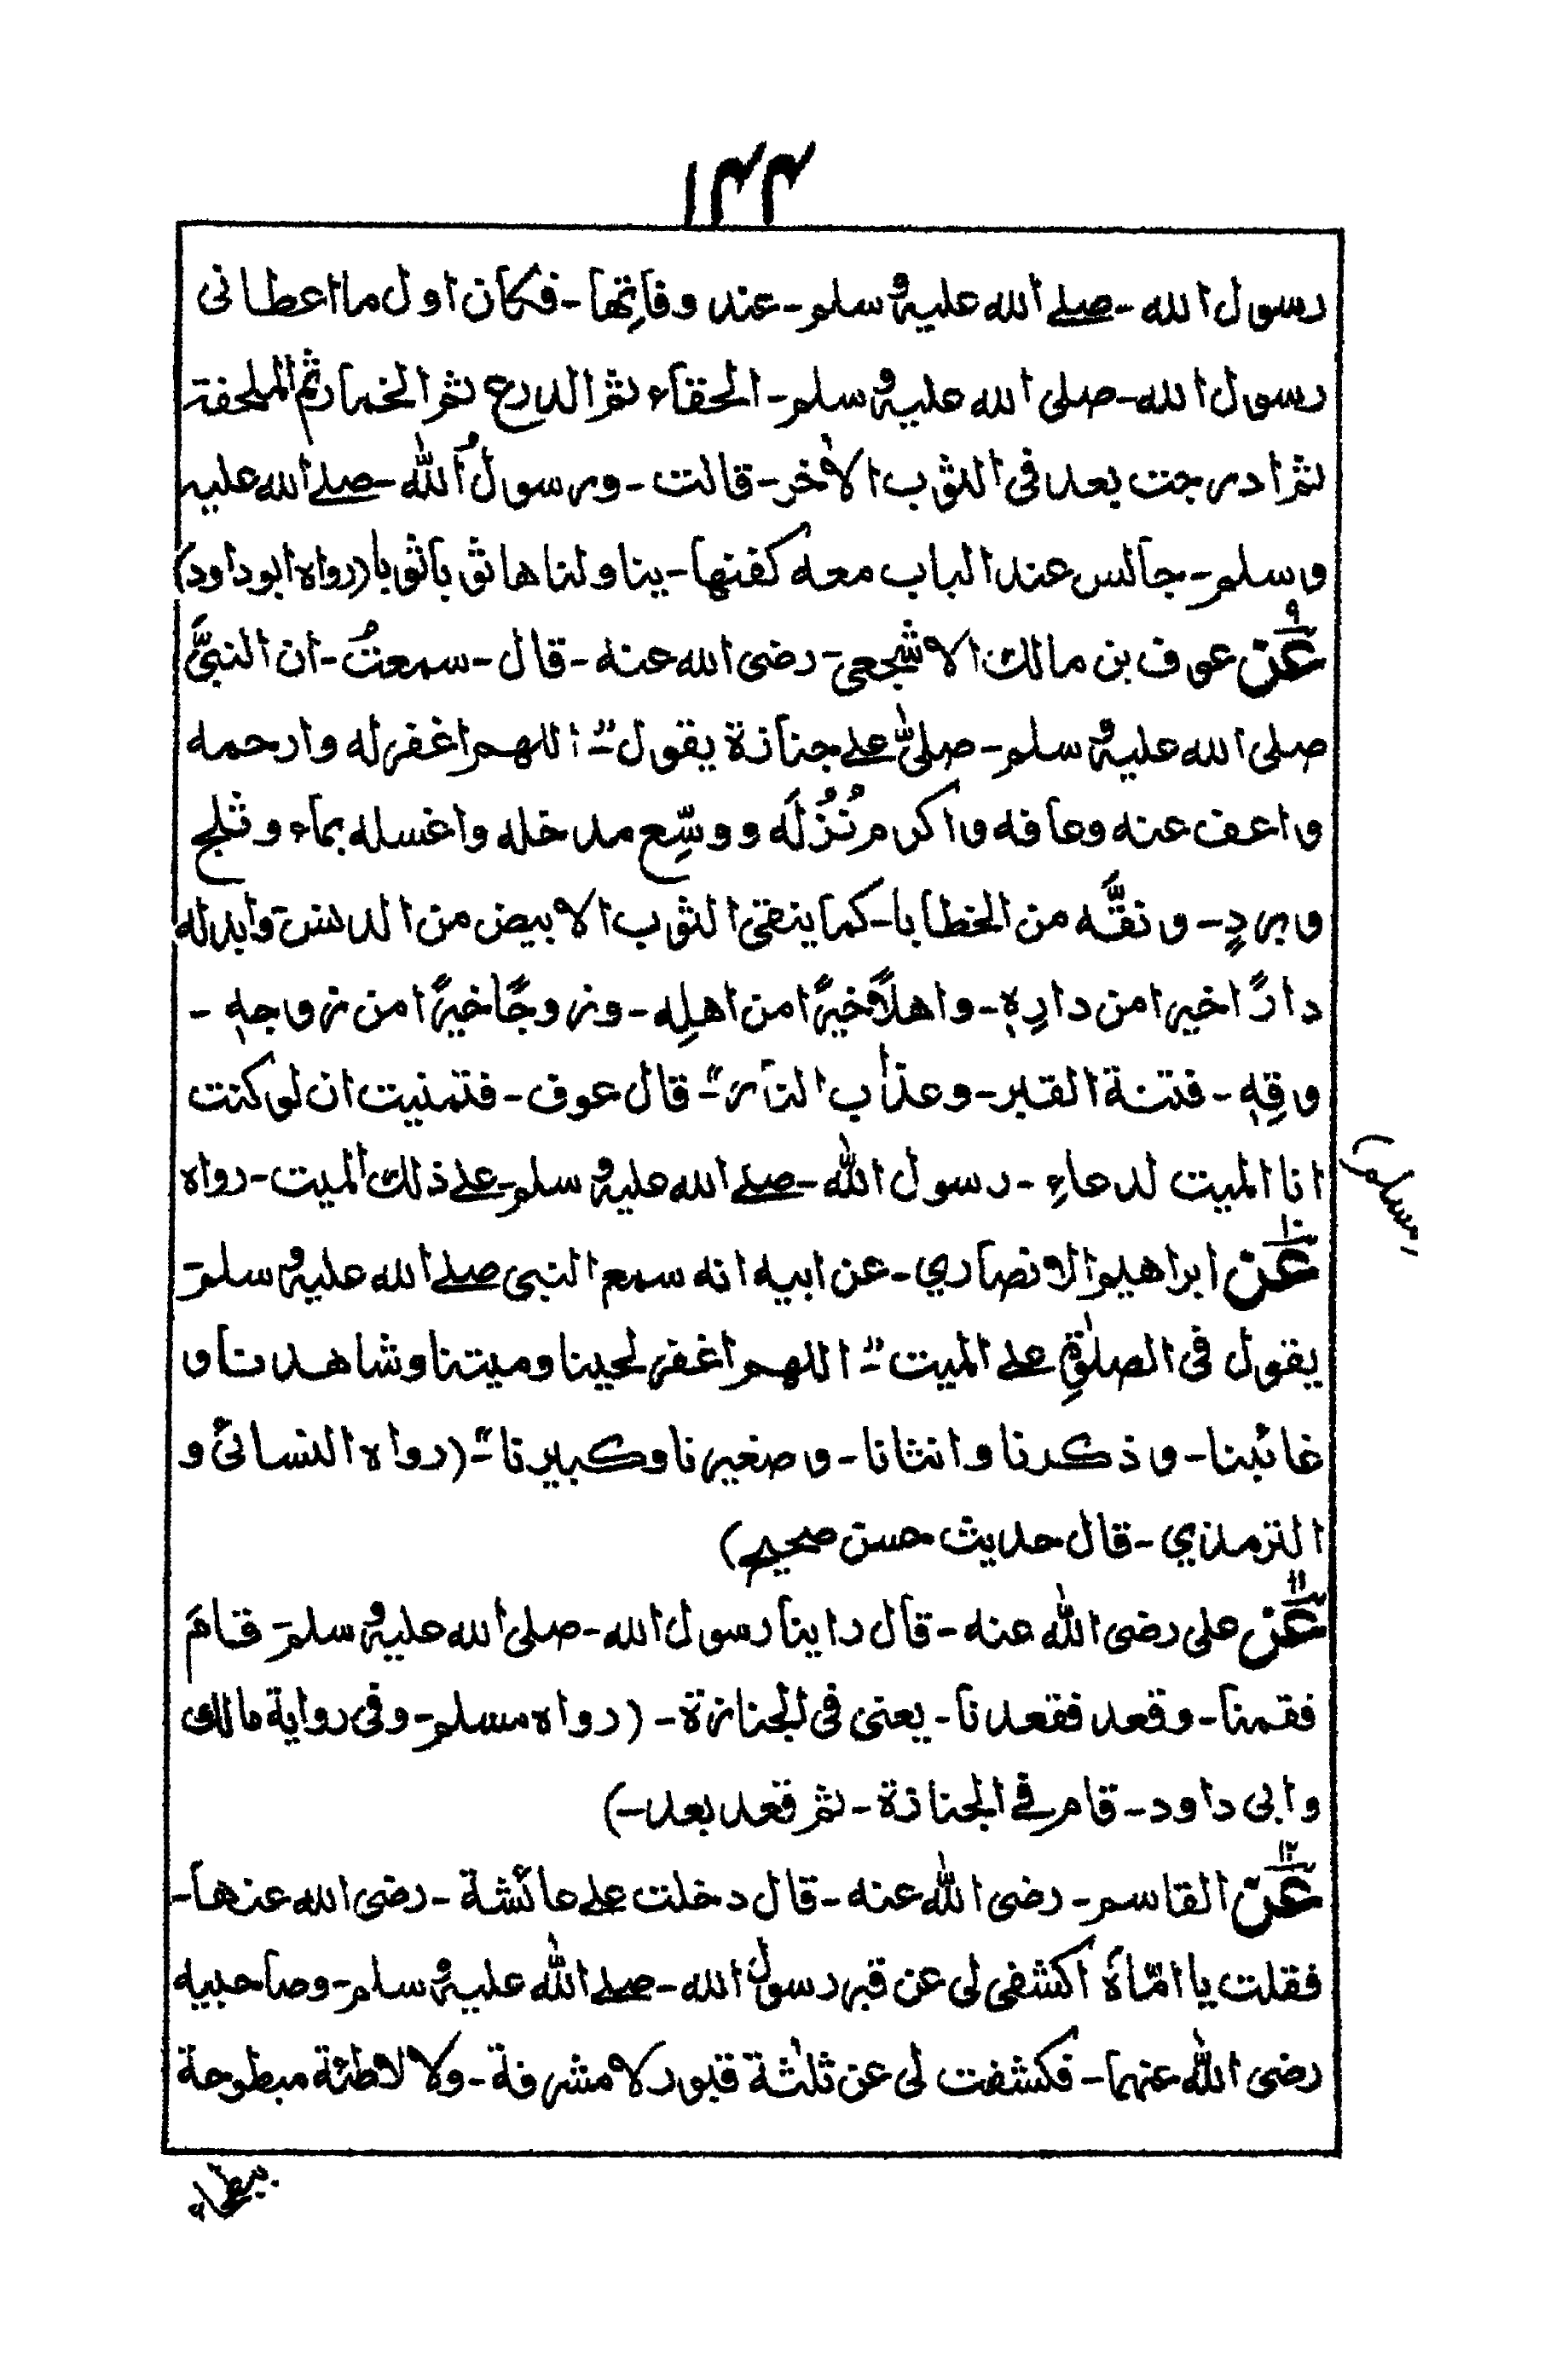 ۱۴۴
رسول الله - صلے الله عليه و سلم - عند وفاتِها - فكان اول ما اعطانى
رسول الله - صلى الله عليه و سلم - الحقاء ثم الدرع ثم الخمار ثم الملحفة
ثم ادرجت بعد فى الثوب الاٰخر - قالت - ورسولُ اللّٰه - صلے الله عليه
وسلم - جالس عند الباب معه كفنها - يناولناها ثوباثوبا (رواه ابو داود)
۹ عن عوف بن مالك الاشجعى - رضى الله عنه - قال - سمعتُ - ان النبىَّ
صلى الله عليه و سلم - صلىّٰ علے جنازة يقول "- اللهم اغفر له وارحمه
واعف عنه وعافه واكرم نُزُلَه ووسِّع مدخله واغسله بماء وثلج
وبردٍ - ونقَّه من الخطايا - كما ينقى الثوب الابيض من الدنس - وابدله
دارًا خيرا من دارِهٖ - واهلاً خيرًا من اهلِه - وزوجًا خيرًا من زوجهٖ -
وقِهٖ - فتنة القبر - وعذاب النار "- قال عوف - فتمنيت ان لو كنت
انا الميت لدعاءِ - رسول اللّٰه - صلے الله عليه و سلم - علے ذلك الميت - رواه
مسلم)
۱۰ عن ابراهيم الانصاري - عن ابيه انه سمع النبى صلے الله عليه و سلم -
يقول فى الصلوٰةِ علے الميت "- اللهم اغفر لحينا وميتنا وشاهدنا و
غائبنا - وذكرنا وانثانا - وصغيرنا وكبيرنا "- (رواه النسائى و
الترمذي - قال حديث حسن صحيح)
۱۱ عن على رضى اللّٰه عنه - قال راينا رسول الله - صلى الله عليه و سلم - قامَ
فقمنا - وقعد فقعدنا - يعنى فى الجنازة - (رواه مسلم - وفى رواية مالك
وابى داود - قام فے الجنازة - ثم قعد بعد -)
۱۲ عن القاسم - رضى اللّٰه عنه - قال دخلت علے عائشة - رضى الله عنها -
فقلت يا امّاهُ اكشفى لى عن قبر رسول الله - صلے اللّٰه عليه و سلم - وصاحبيه
رضى اللّٰه عنهما - فكشفت لى عن ثلٰثة قبور لا مشرفة - ولا لاطئة مبطوحة
ببطحاء